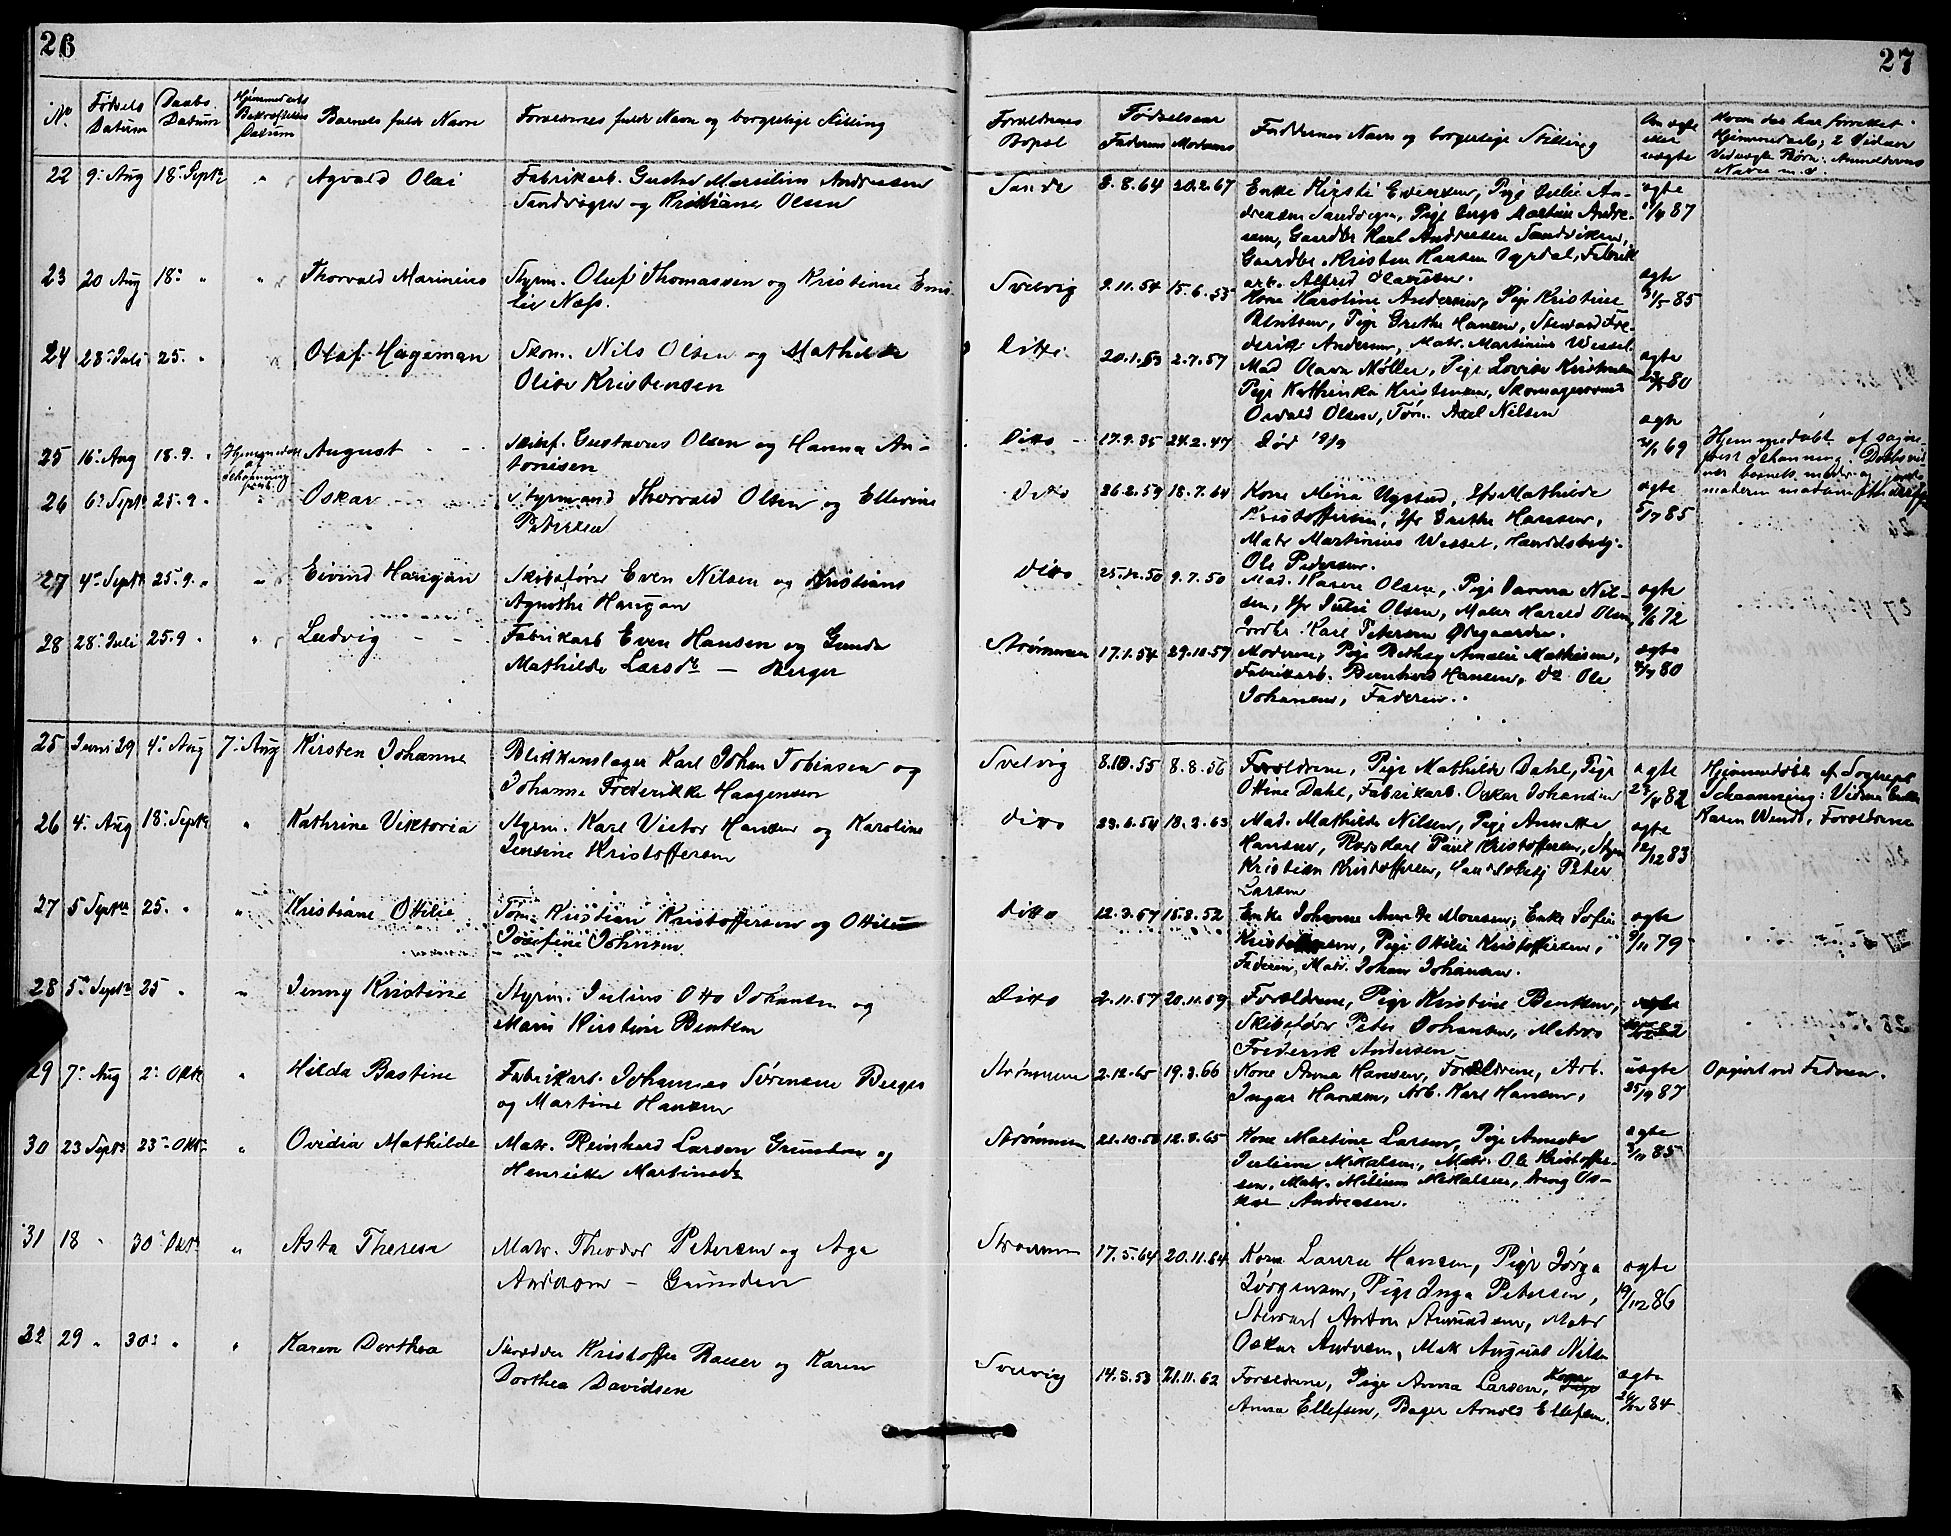 26
No
Fødsels Datum
Daabs Datum
Hjemmedaabs Bekræftelses Datum
Barnets fulde Navn
Forældrenes fulde Navn og borgerlige Stilling
22 9. Aug 18. Septr " Agvald Olai Fabrikarb. Gustav Marselius Andreasen
Sandvigen og Kristiane Olsen
23 20 Aug 18. " " Thorvald Marinius Styrm. Oluf Thomassen og Kristiane Emi-
lie Næss.
24 28. Juli 25. " " Olaf Hageman Skom. Nils Olsen og Mathilde
Olise Kristensen
25 16. Aug 18.9. Hjemmedøbt af Schanning August Skibsf. Gustavus Olsen og Hanna An-
tonisen
26 6. Septr 25.9. " Oskar Styrmand Thorvald Olsen og Ellevine
Petersen
27 4. Septr 25.9. " " Eivind Harijan Skibsfører Even Nilsen og Kristiane
Agnethe Harijan
28 28. Juli 25.9 " " Ludvig Fabrikarb Even Hansen og Gunda
Mathilde Larsdr — Berger
25 Juni 29 4. Aug 7. Aug Kirsten Johanne Blikkenslager Karl Johan Tobiasen og
Johanne Frederikke Haagensen
26 4. Aug 18. Septr " Kathrine Viktoria Styrm. Karl Victor Hansen og Karoline
Jensine Kristoffersen
27 5 Septbr 25. " " Kristiane Ottilie Tøm. Kristian Kristoffersen og Ottilie
Josefine Johnsen
28 5. Septr 25 " " Jenny Kristine Styrm. Julius Otto Johansen og
Maren Kirstine Bentsen
29 7. Aug 2. Okt " Hilda Bastine Fabrikarb. Johannes Sørensen Berger
og Martine Hansen
30 23 Septr 23. Okt " Ovidia Mathilde Matr. Reinhard Larsen Grunden og
Henriette Martinsdr
31 18 " 30. Okt " Asta Theresa Matr. Theodor Petersen og Aga
Andersen — Grunden
32 29 " 30. " " Karen Dorthea Skrædder Kristoffer Bauer og Karen
Dorthea Davidsen
27
Forældrenes Bopæl
Fødselsaar
Faderens Moderens
Faddernes Navn og borgerlige Stilling
Om ægte eller uægte
Hvem der har forrettet
Hjemmedaab; 2 Vidner
Ved uægte Børn: Anmelderens
Navn m. v.
Sande 8.8.64 20.2.67 Enke Kirsti Evensen, Pige Julie An-
dreasen Sandvigen, Pige Inga Martine Andre-
sen, Gaardbr Karl Andresen Sandviken,
Gaardbr. Kristen Hansen Dyrdal, Fabrik
arb. Alfred Olausen.
ægte 87
Svelvig 9.11.54 15.6.53 Kone Karoline Andersen, Pige Kristine
Bentsen, Pige Grethe Hansen, Steward Fre-
derik Andersen, Matr. Martinius Wessel.
ægte 31/5 85
Ditto 20.1.53 2.7.57 Mad Olava Møller, Pige Lovise Kristensen
Pige Kathinka Kristensen, Skomagersvend
Osvald Olsen, Tøm. Axel Nilsen
ægte 80
Ditto 17.9.35 24.2.47 Død 19/9
ægte 69
Hjemmedøbt af sogne-
prest Schanning. Daabsvid-
ner barnets moder og Jorde-
moderen madam
Ditto 26.2.59 18.7.64 Kone Mina Nystad, Jfr Mathilde
Kristoffersen, Jfr Grethe Hansen,
Matr Martinius Wessel, Handelsbetj.
Ole Pedersen.
ægte 5/7 85
Ditto 25.12.50 9.7.50 Mad. Karen Olsen, Pige Hanna Nil-
sen, Jfr Julie Olsen, Maler Harald Olsen,
Jordbr. Karl Petersen Ødegaarden.
ægte 9/6 72
Strømmen 17.1.54 29.10.57 Moderen, Pige Bethsy Amalie Mathisen,
Fabrikarb. Bernhard Hansen, Do Ole
Johansen, Faderen.
ægte 80
Svelvig 8.10.55 8.8.56 Forældrene, Pige Mathilde Dahl, Pige
Ottine Dahl, Fabrikarb. Oskar Johansen
ægte 82
Hjemmedøbt af Sognepr
Schanning: Vidner Enke
Karen Wendt, Forældrene
ditto 23.6.54 18.2.63 Mad. Mathilde Nilsen, Pige Annette
Hansen, Rorskarl Paul Kristoffersen, Styrm
Kristian Kristoffersen, Handelsbetj Peter
Larsen
ægte 12/12 83
Ditto 12.3.57 15.8.52 Enke Johanne Marie Monsen, Enke Sofie
Kristoffersen, Pige Ottilie Kristoffersen,
Faderen, Matr. Johan Johansen.
ægte 9/11 79
Ditto 2.11.57 20.11.59 Forældrene, Pige Kristine Bentsen,
Skibsfører Peter Johansen, Matros
Frederik Andersen
ægte 82
Strømmen 2.12.65 19.3.66 Kone Anna Hansen, Forældrene, Arb.
Ingar Hansen, Arb. Karl Hansen,
uægte 25/9 87
Opgivet ved Faderen.
Strømmen 21.10.58 12.8.65 Kone Martine Larsen, Pige Annette
Juliane Mikalsen, Matr. Ole Kristoffer-
sen, Matr. Milius Mikalsen, Dreng Os-
kar Andreasen.
ægte 85
Strømmen 17.5.64 20.11.64 Kone Laura Hansen, Pige Jørga
Jørgensen, Pige Inga Petersen,
Steward Anton Amundsen, Matr
Oskar Andersen, Matr August Nilsen
ægte 19/12 86
Svelvig 14.3.53 21.11.62 Forældrene, Pige Anna Larsen, Kone
Anna Ellefsen, Bager Arnold Ellefsen.
ægte 84